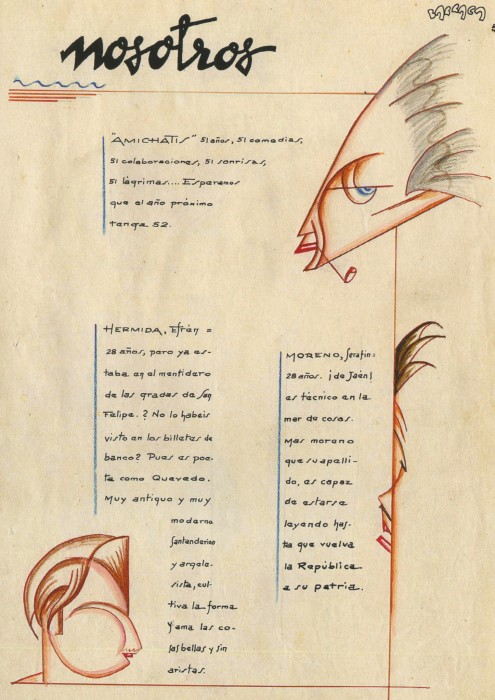 nosotros
"AMICHATIS" 51 años, 51 comedias,
51 colaboraciones, 51 sonrisas,
51 lágrimas.... Esperemos
que el año próximo
tenga 52.
HERMIDA, Efrén =
28 años, pero ya es-
taba en el mentidero
de las gradas de San
Felipe. ? No lo habeis
visto en los billetes de
banco? Pues es poe-
ta como Quevedo.
Muy antiguo y muy
moderno
Santanderino
y argele-
sista, cul-
tiva la forma
y ama las co-
sas bellas y sin
aristas.
MORENO, Serafin:
28 años. ¡de Jaén!
es técnico en la
mar de cosas.
Mas moreno
que su apelli-
do, es capaz
de estarse
leyendo has-
ta que vuelva
la República
a su patria.